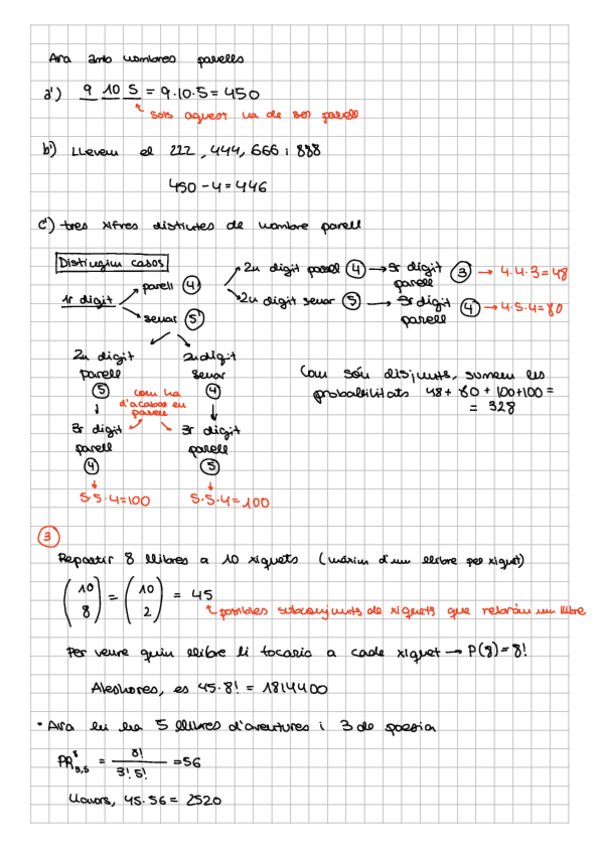 Ara amb nombres parells
a') 9 10 5 = 9·10·5 = 450
sols aquest ha de ser parell
b') Llevem el 222, 444, 666 i 888
450 - 4 = 446
c') tres xifres distintes de nombre parell
Distingim casos
1r digit
parell 4
2n digit parell 4 → 3r digit parell 3 → 4·4·3 = 48
2n digit senar 5 → 3r digit parell 4 → 4·5·4 = 80
senar 5
2n digit parell 5
2n digit senar 4
com ha d'acabar en parell
3r digit parell 4
3r digit parell 5
5·5·4 = 100
5·5·4 = 100
Com són disjunts, sumem les
probabilitats 48 + 80 + 100 + 100 =
= 328
3
Repartir 8 llibres a 10 xiquets (màxim d'un llibre per xiquet)
(10 8) = (10 2) = 45
possibles subconjunts de xiquets que rebràn un llibre
Per veure quin llibre li tocaria a cada xiquet → P(8) = 8!
Aleshores, es 45·8! = 1814400
· Ara hi ha 5 llibres d'aventures i 3 de poesia
PR⁸₃,₅ = 8! / 3! 5! = 56
Llavors, 45·56 = 2520